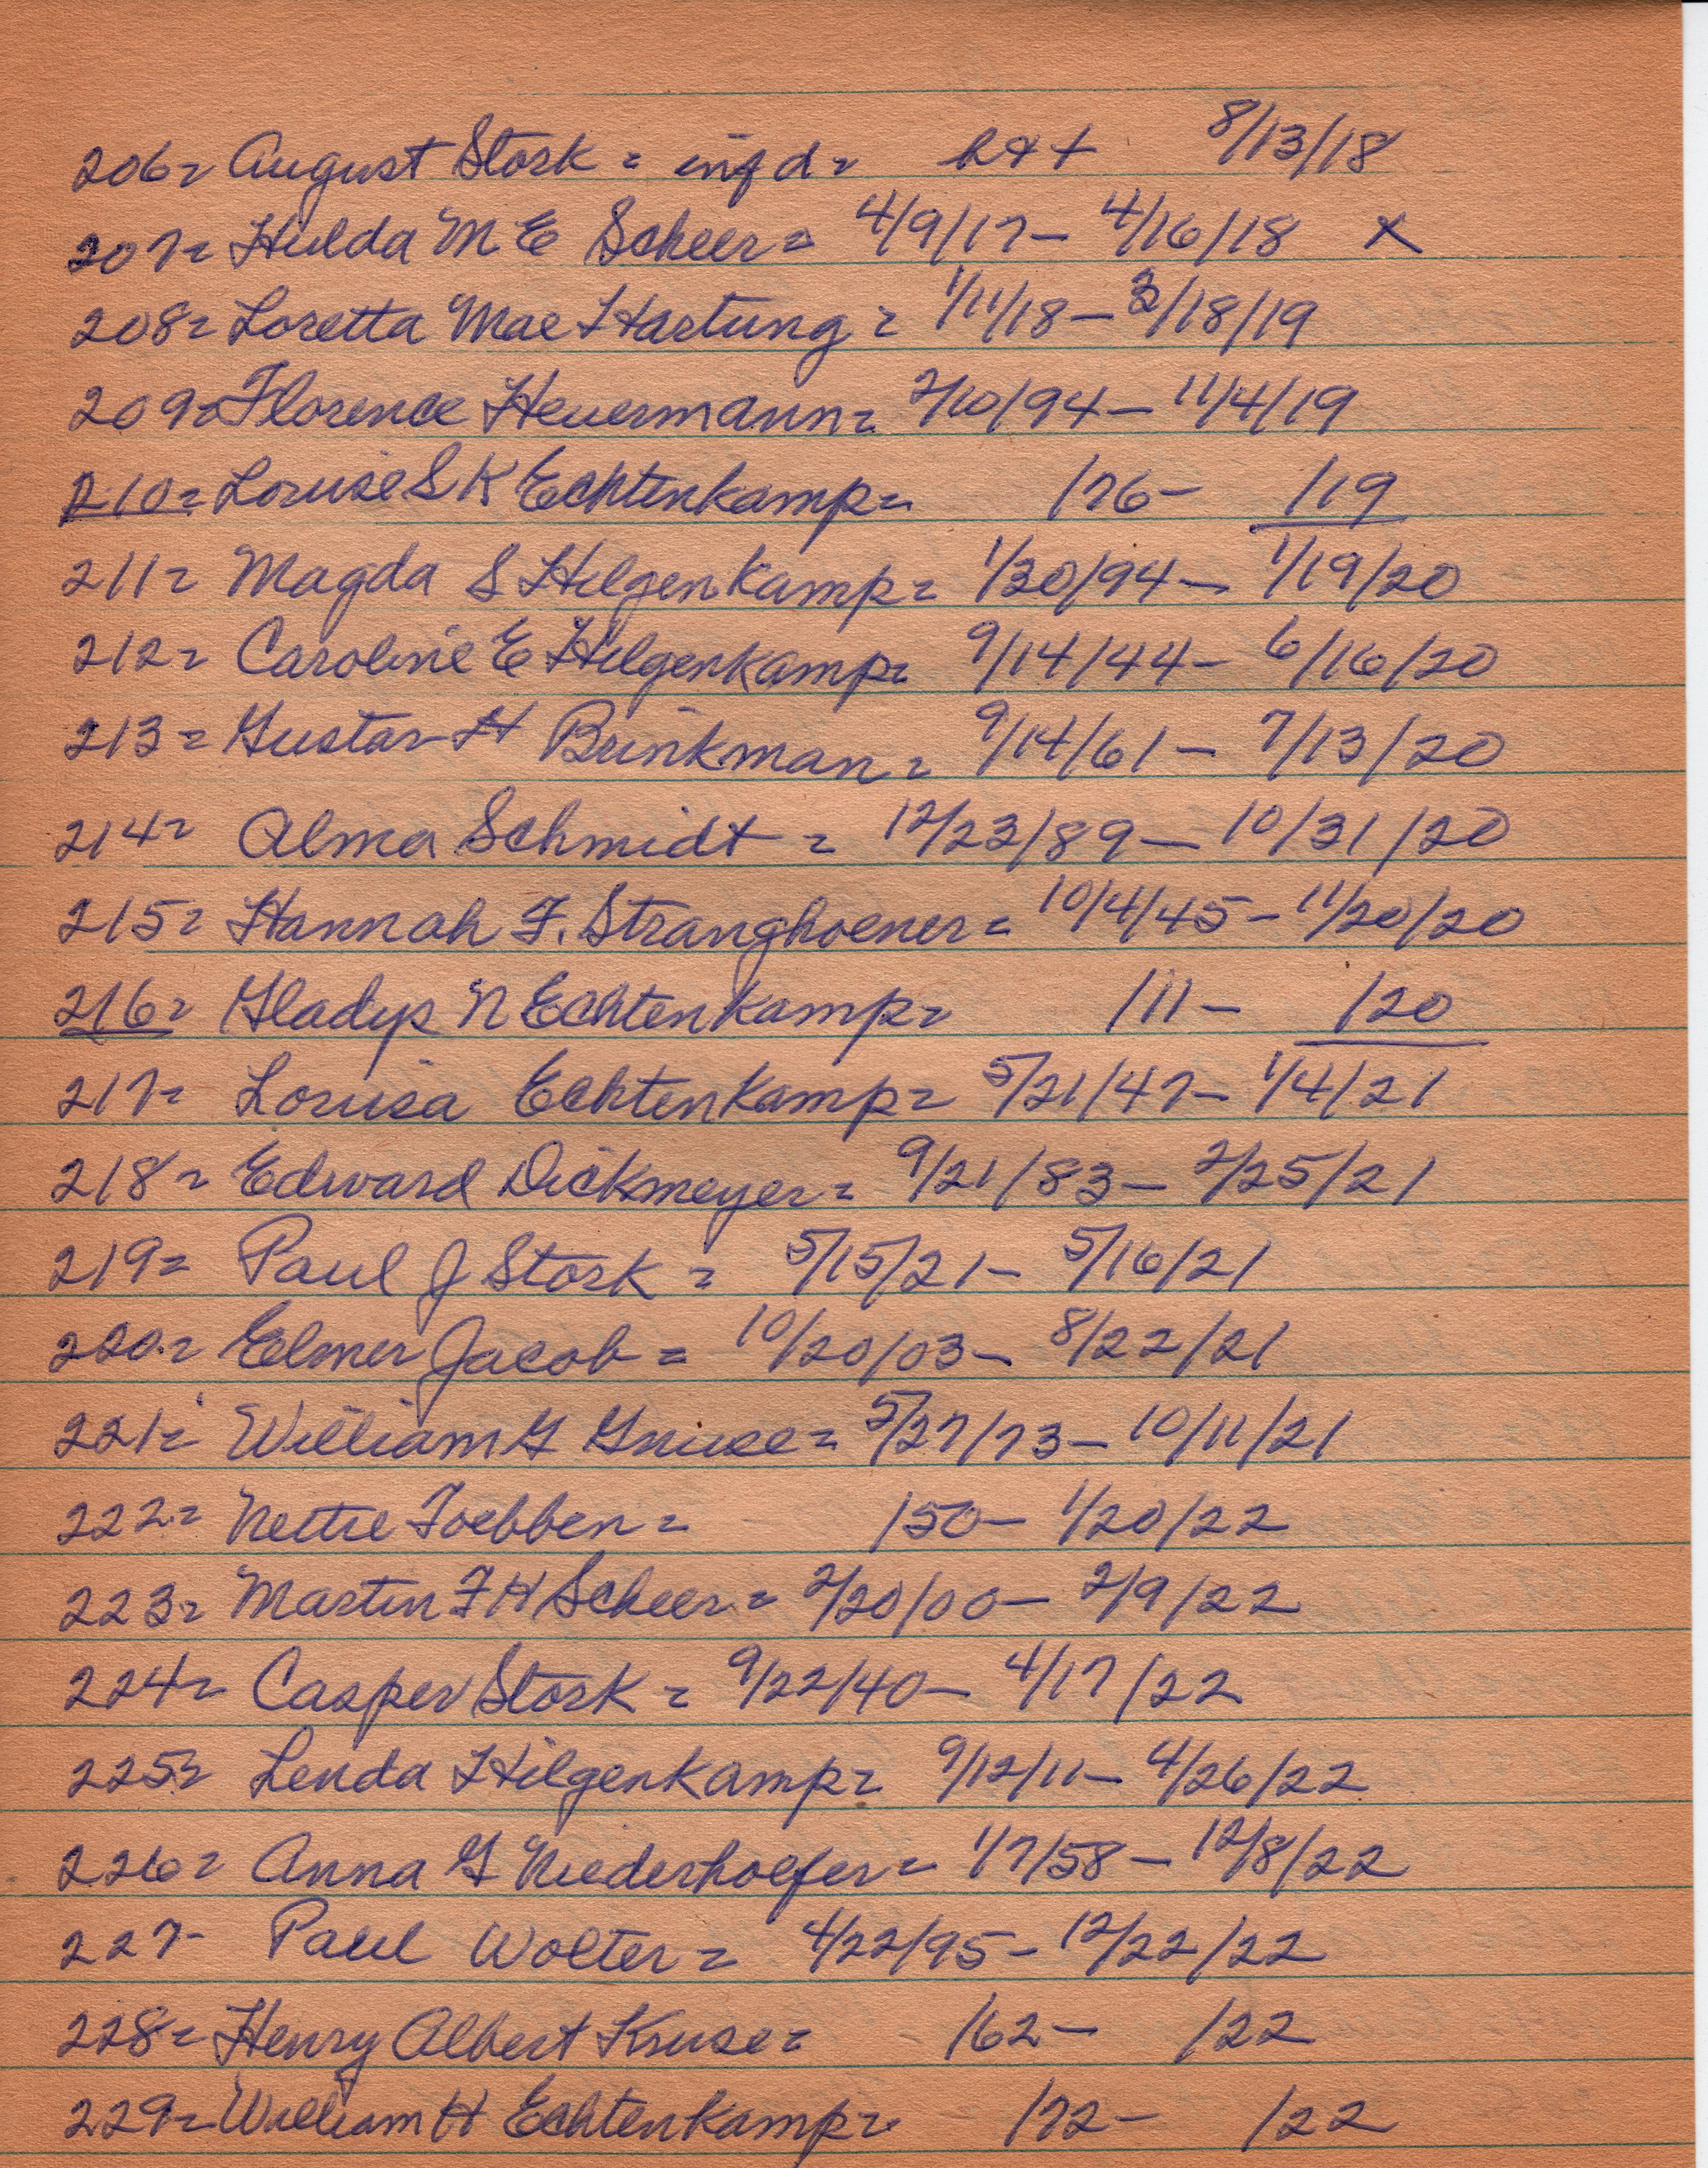 206= August Stork = inf d= b&+ 8/13/18
207= Hulda M E Scheer= 4/9/17- 4/16/18 X
208= Loretta Mae Hartung = 1/11/18- 3/18/19
209= Florence Heuermann= 2/10/94- 11/4/19
210= Louise S K Echtenkamp= /76- /19
211= Magda S Hilgenkamp= 1/30/94- 1/19/20
212= Caroline E Hilgenkamp= 9/14/44- 6/16/20
213= Gustav H Brinkman= 9/14/61- 7/13/20
214= Alma Schmidt = 12/23/89- 10/31/20
215= Hannah F. Stranghoener= 10/4/45- 11/20/20
216= Gladys N Echtenkamp= /11- /20
217= Louisa Echtenkamp= 5/21/47- 1/4/21
218= Edward Dickmeyer= 9/21/83- 2/25/21
219= Paul J Stork = 5/15/21- 5/16/21
220= Elmer Jacob = 10/20/03- 8/22/21
221= William G Gnuse= 5/27/73- 10/11/21
222= Nettie Foebben= /50- 1/20/22
223= Martin F H Scheer= 2/20/00- 2/9/22
224= Casper Stork = 9/22/40- 4/17/22
225= Lenda Hilgenkamp= 9/12/11- 4/26/22
226= Anna G Niederhoefer= 1/7/58- 12/8/22
227- Paul Wolter= 4/22/95- 12/22/22
228= Henry Albert Kruse= /62- /22
229= William H Echtenkamp= /72- /22